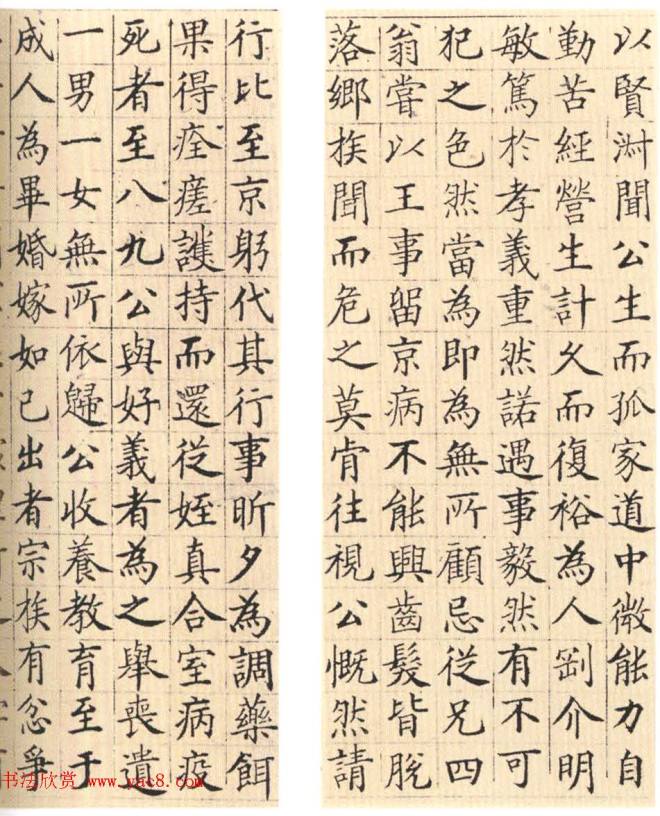 以賢淑聞公生而孤家道中微能力自
勤苦經營生計久而復裕為人剛介明
敏篤於孝義重然諾遇事毅然有不可
犯之色然當為即為無所顧忌從兄四
翁嘗以王事留京病不能興齒髮皆脫
落鄉族聞而危之莫肯往視公慨然請
行比至京躬代其行事昕夕為調藥餌
果得痊瘥護持而還從姪真合室病疫
死者至八九公與好義者為之舉喪遺
一男一女無所依歸公收養教育至于
成人為畢婚嫁如己出者宗族有忿爭
书法欣赏 www.yac8.com